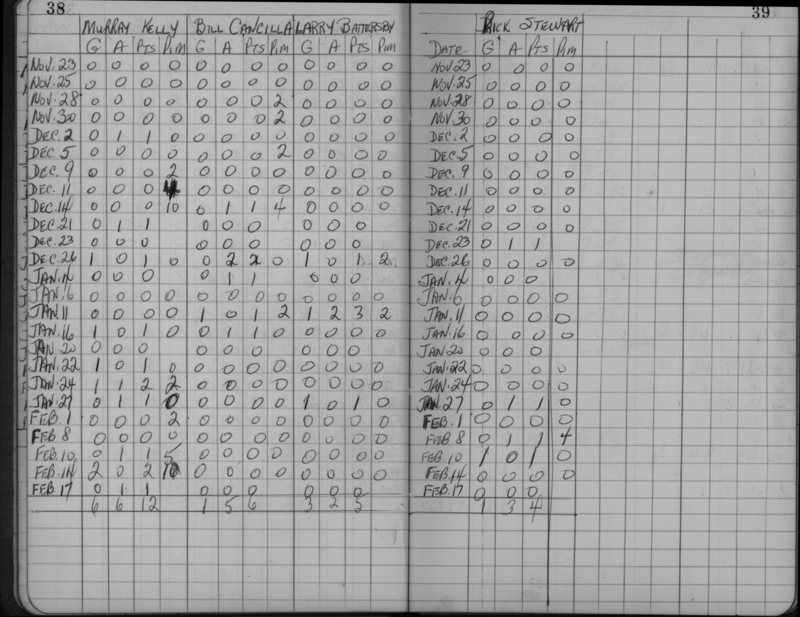 38
MURRAY KELLY BILL CANCILLA LARRY BATTERSBY
G A PTS PIM G A PTS PIM G A PTS PIM
NOV. 23 0 0 0 0 0 0 0 0 0 0 0 0
NOV. 25 0 0 0 0 0 0 0 0 0 0 0 0
NOV. 28 0 0 0 0 0 0 0 2 0 0 0 0
NOV. 30 0 0 0 0 0 0 0 2 0 0 0 0
DEC. 2 0 1 1 0 0 0 0 0 0 0 0 0
DEC. 5 0 0 0 0 0 0 0 2 0 0 0 0
DEC. 9 0 0 0 2 0 0 0 0 0 0 0 0
DEC. 11 0 0 0 4 0 0 0 0 0 0 0 0
DEC. 14 0 0 0 10 0 1 1 4 0 0 0 0
DEC. 21 0 1 1 0 0 0 0 0 0
DEC. 23 0 0 0 0 0 0 0 0 0
DEC. 26 1 0 1 0 0 2 2 0 1 0 1 2
JAN. 4 0 0 0 0 1 1 0 0 0
JAN. 6 0 0 0 0 0 0 0 0 0 0 0 0
JAN. 11 0 0 0 0 1 0 1 2 1 2 3 2
JAN. 16 1 0 1 0 0 1 1 0 0 0 0 0
JAN 20 0 0 0 0 0 0 0 0 0
JAN. 22 1 0 1 0 0 0 0 0 0 0 0 0
JAN. 24 1 1 2 2 0 0 0 0 0 0 0 0
JAN. 27 0 1 1 0 0 0 0 0 1 0 1 0
FEB. 1 0 0 0 2 0 0 0 0 0 0 0 0
FEB 8 0 0 0 0 0 0 0 0 0 0 0 0
FEB. 10 0 1 1 5 0 0 0 0 0 0 0 0
FEB. 14 2 0 2 0 0 0 0 0 0 0 0
FEB 17 0 1 1 0 0 0 0 0 0
6 6 12 1 5 6 3 2 5
39
RICK STEWART
DATE G A PTS PIM
NOV. 23 0 0 0 0
NOV. 25 0 0 0 0
NOV. 28 0 0 0 0
NOV. 30 0 0 0 0
DEC. 2 0 0 0 0
DEC. 5 0 0 0 0
DEC. 9 0 0 0 0
DEC. 11 0 0 0 0
DEC. 14 0 0 0 0
DEC. 21 0 0 0 0
DEC. 23 0 1 1
DEC. 26 0 0 0 0
JAN. 4 0 0 0
JAN. 6 0 0 0 0
JAN. 11 0 0 0 0
JAN. 16 0 0 0 0
JAN. 20 0 0 0
JAN. 22 0 0 0 0
JAN. 24 0 0 0 0
JAN. 27 0 1 1 0
FEB. 1 0 0 0 0
FEB 8 0 1 1 4
FEB. 10 1 0 1 0
FEB. 14 0 0 0 0
FEB. 17 0 0 0
1 3 4